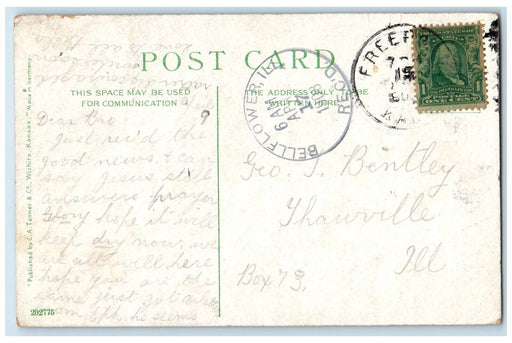 POST CARD
THIS SPACE MAY BE USED
FOR COMMUNICATION
THE ADDRESS ONLY TO BE
WRITTEN HERE
BELLFLOWER, ILL.
REC'D.
6 AM
1908
FREEP
KA
1
9
Dear Bro
Just rec'd the
good news. & can
say Jesus still
answers prayer
Glory hope it will
keep dry now. we
are all well here
hope you are the
same just got a letter
from Eph. he seems
love to all
Geo. T. Bentley
Thawville
Ill
Box 73,
"Published by C.A. Tanner & Co., Wichita, Kansas." Made in Germany.
202775